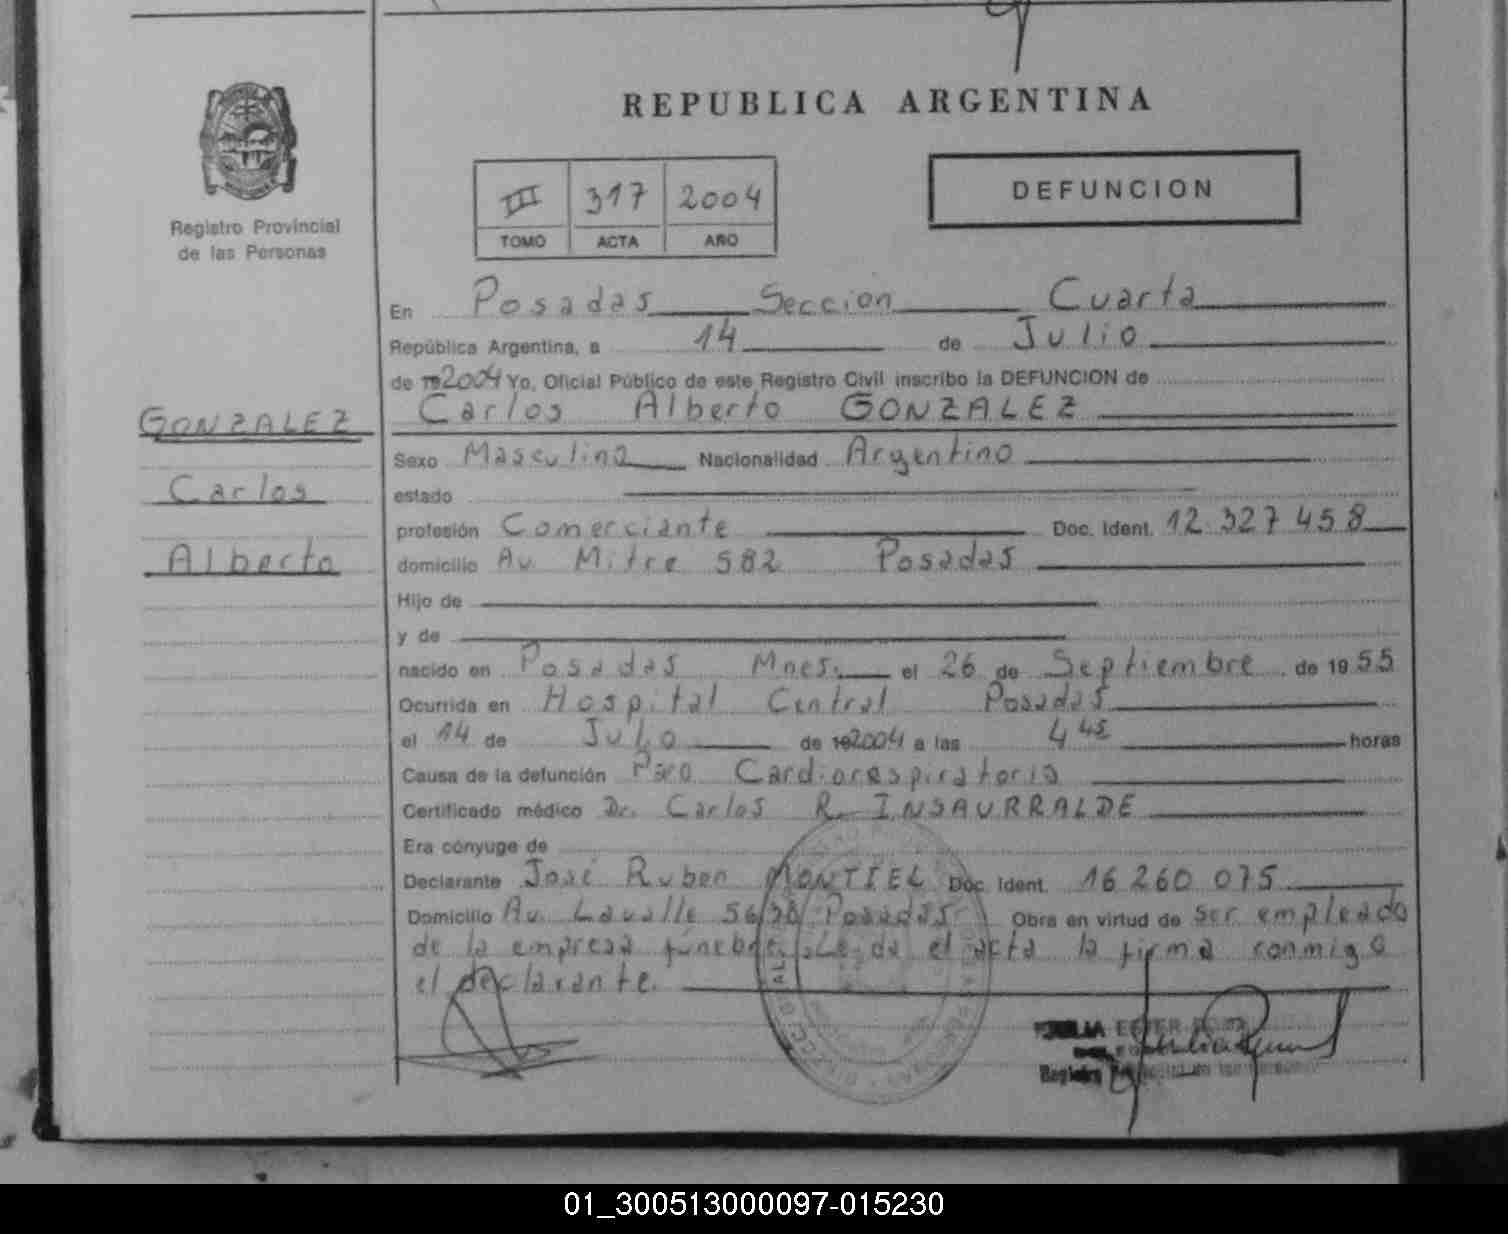 REPUBLICA ARGENTINA
Registro Provincial
de las Personas
III 317 2004
TOMO ACTA AÑO
DEFUNCION
GONZALEZ
Carlos
Alberto
En Posadas Seccion Cuarta
República Argentina, a 14 de Julio
de 2004 Yo, Oficial Público de este Registro Civil inscribo la DEFUNCION de
Carlos Alberto GONZALEZ
Sexo Masculino Nacionalidad Argentino
estado
profesión Comerciante Doc. Ident. 12.327 458
domicilio Av. Mitre 582 Posadas
Hijo de
y de
nacido en Posadas Mnes. el 26 de Septiembre de 1955
Ocurrida en Hospital Central Posadas
el 14 de Julio de 2004 a las 4 45 horas
Causa de la defunción Paro Cardiorespiratorio
Certificado médico Dr. Carlos R. INSAURRALDE
Era cónyuge de
Declarante José Ruben MONTIEL Doc. Ident. 16 260 075
Domicilio Av. Lavalle Posadas Obra en virtud de ser empleado
de la empresa fúnebre. Leída el acta la firma conmigo
el declarante.
01_300513000097-015230